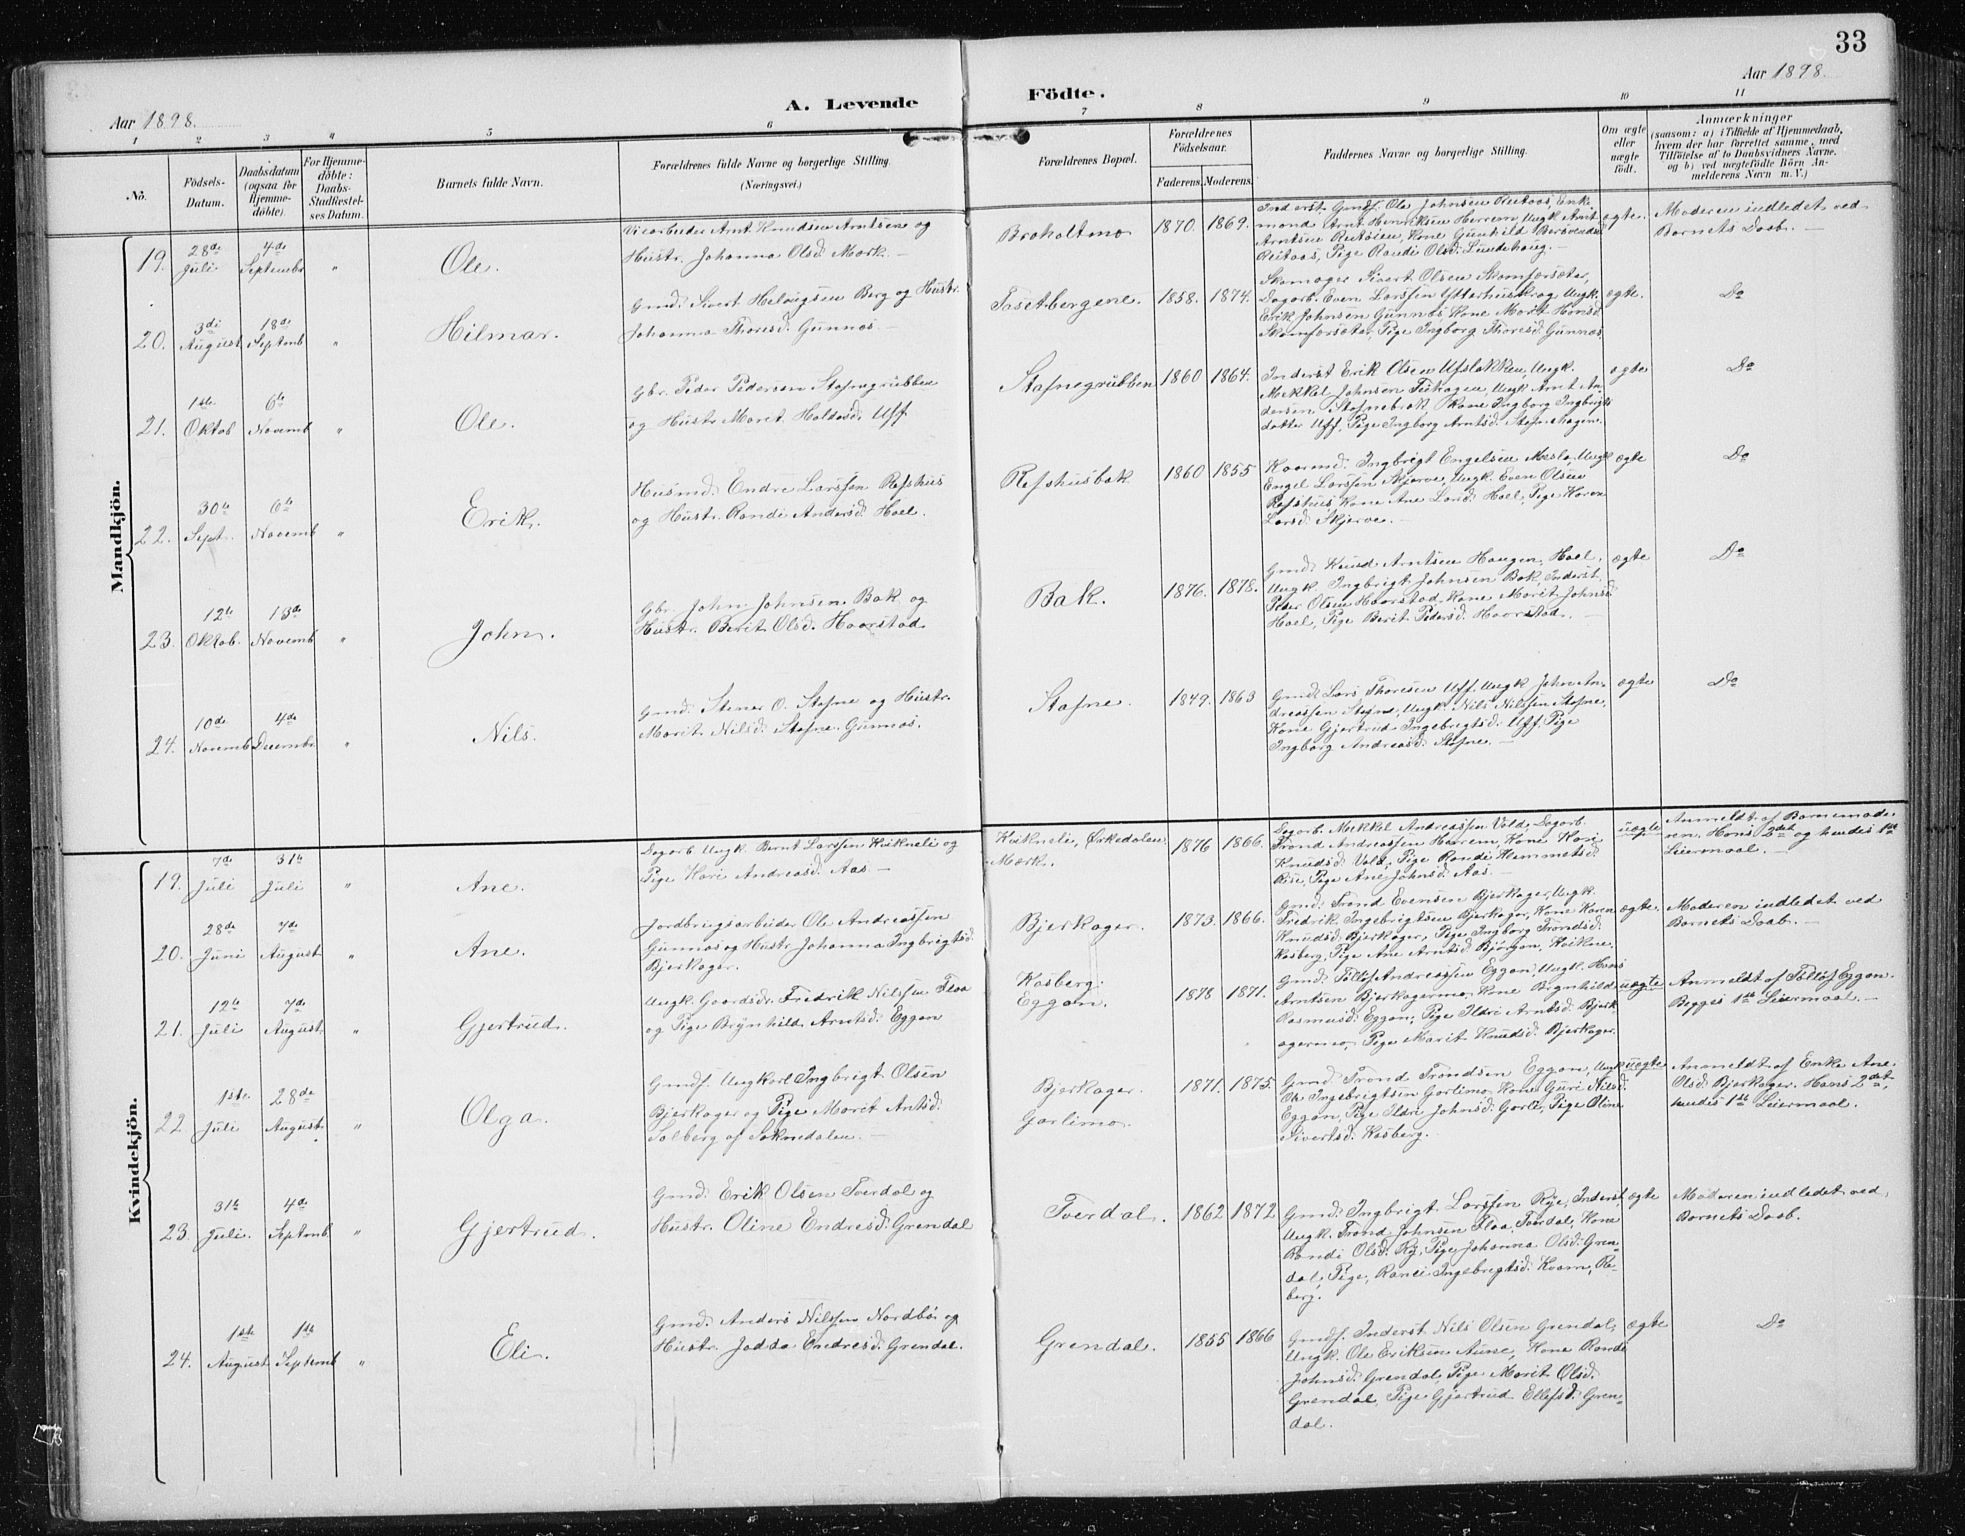 33
Aar 1898.
A. Levende
Födte.
Aar 1898.
1
2
3
"
5
6
7
8
9
10
11
No.
Födsels-
Datum.
Daabsdatum
(ogsaa for
Hjemme-
döbte)
For Hjemme-
döbte:
Daabs-
Stadfæstel-
ses Datum.
Barnets fulde Navn.
Forældrenes fulde Navne og borgerlige Stilling.
(Næringsvei.)
Forældrenes Bopæl.
Forældrenes
Födselsaar.
Faderens.
Moderens.
Faddernes Navne og borgerlige Stilling.
Om ægte
eller
uægte
födt.
Anmærkninger
(saasom: a) i Tilfælde af Hjemmedaab,
hvem der har forrettet samme, med
Tilföielse af to Daabsvidners Navne.
og b) ved uægtefödte Börn An-
melderens Navn m. V.)
Mandkjön.
19.
28de
Juli
4de
Septembr
"
Ole.
Veiarbeider Arnt Knudsen Arntsen og
Hustr. Johanna Olsd. Mork. —
Broholtmo
1870.
1869.
Inderst, Gmdf. Ole Johnsen Reitaas, Enke-
mand Arnt Henriksen Herrem, Ungk. Arnt
Arntsen Reitöien, Kone Gunhild
Reitaas, Pige Randi Olsd. Lundehaug. —
ægte.
Moderen indledet ved
Barnets Daab. —
20.
3die
August
18de
Septemb
"
Hilmar.
Gmd. Sivert Helvigsen Berg og Hustr.
Johanna Thoresd. Gunnes —
Tosetbergene.
1858.
1874.
Skomager Sivert Olsen Skamfersæter,
Dagarb. Even Larssen Ytterhuskrog, Ungk.
Erik Johnsen Gunnes, Kone Marit Hansd.
Skamfersæter, Pige Ingborg Thoresd. Gunnes
ægte.
Do
21.
1ste
Oktob
6te
Novemb
"
Ole.
Gbr. Peder Pedersen Stafnegrubben
og Hustr. Marit Haldosd. Uff
Stafnegrubben
1860
1864.
Inderst Erik Olsen Ufsløkken, Ungk.
Mekkel Johnsen, Ungk. Arnt An-
dersen Stafnebak, Kone Ingborg Ingbrigts
datter Uff, Pige Ingborg Arntsd. Stafnehagen.
ægte
Do
22.
30te
Sept.
6te
Novemb
"
Erik.
Husmd. Endre Larssen Refshus
og Hustr. Randi Andersd. Hoel.
Refshusbak
1860
1855
Kaarmd. Ingbrigt Engelsen Mæsla, Ungk
Engel Larssen Skjerve, Ungk. Even Olsen
Refshus, Kone Ane Larsd. Hoel, Pige Karen
Larsd. Skjerve. —
ægte
Do
23.
12te
Oktob.
13de
Novemb
"
John.
Gbr. John Johnsen Bak og
Hustr. Berit Olsd. Haarstad
Bak.
1876.
1878.
Gmd. Knud Arntsen Haugen, Hoel,
Ungk. Ingbrigt Johnsen Bak, Inderst
Peder Olsen Haarstad, Kone Marit Johnsd
Hoel, Pige Berit Pedersd. Haarstad. —
ægte
Do
24.
10de
Novemb
4de
Decembr.
"
Nils.
Gmd. Stener O. Stafne og Hustr.
Marit Nilsd. Stafne. Gunnes.
Stafne.
1849.
1863
Gmd. Lars Thoresen Uff. Ungk. John An-
dreassen Stafne, Ungk. Nils Nilssen Stafne,
Kone Gjertrud Ingebrigtsd. Uff. Pige
Ingborg Andreasd. Stafne. —
ægte
Do
Kvindekjön.
19.
7de
Juli
31te
Juli
"
Ane.
Dagarb. Ungk. Bernt Larssen Kvikneli og
Pige Kari Andreasd. Aas —
Kvikneli, Ørkedalen
Mærk.
1876
1866.
Dagarb. Mekkel Andreassen Vold, Dagarb.
Trond Andreassen Herrem, Kone Kari
Knudsd. Vold, Pige Randi Hemmetsd.
Rise, Pige Ane Johnsd. Aas —
uægte
Anmeldt af Barnemode-
ren. Hans 2det og hendes 1ste
Leiermaal. —
20.
28de
Juni
7de
August
"
Ane.
Jordbrugsarbeider Ole Andreassen
Gunnes og Hustr. Johanna Ingbrigtsd.
Bjerkager.
Bjerkager.
1873.
1866.
Gmd. Trond Evensen Bjerkager, Ungk.
Fredrik Ingebrigtsen Bjerkager, Kone Karen
Knudsd. Bjerkager, Pige Ingborg Trondsd.
Kosberg, Pige Ane Arntsd. Bjørgan, Kvikne.
ægte.
Moderen indledet ved
Barnets Daab. —
21.
12te
Juli
7de
August.
"
Gjertrud.
Ungk. Gaardsdr. Fredrik Nilssen Floa
og Pige Brynhild Arntsd. Eggan
Kosberg.
Eggan.
1878
1871.
Gmd. Tollef Andreassen Eggan, Ungk. Hans
Arntsen Bjerkagermo, Kone Brynhild
Rasmusd. Eggan, Pige Ildri Arntsd. Bjerk-
agermo, Pige Marit Knudsd. Bjerkager.
uægte
Anmeldt af Tollef Eggan.
Begges 1ste Leiermaal. —
22
1ste
Juli
28de
August.
"
Olga.
Gmdf. Ungkarl Ingbrigt Olsen
Bjerkager og Pige Marit Antsd.
Solberg af Soknedalen. —
Bjerkager.
Garlimo.
1871.
1875.
Gmd. Trond Trondsen Eggan, Ungk
Ole Ingebrigtsen Garlimo, Kone Guri Nilsd.
Eggan, Pige Ildri Johnsd. Garli, Pige Oline
Sivertsd. Kosberg.
uægte
Anmeldt af Enke Ane
Olsd. Bjerkager. Hans 2det,
hendes 1ste Leiermaal.
23.
31te
Juli.
4de
Septemb.
"
Gjertrud.
Gmd. Erik Olsen Tverdal og
Hustr. Oline Endresd. Grendal
Tverdal.
1862
1872
Gmd. Ingbrigt Larssen Rye, Inderst,
Ungk. Trond Johnsen Floa Tverdal, Kone
Randi Olsd. Ry, Pige Johanna Olsd. Gren-
dal, Pige, Randi Ingebrigtsd. Kvam, Re-
berg.
ægte
Moderen indledet ved
Barnets Daab.
24.
1ste
August
1ste
Septemb
"
Eli.
Gmd. Anders Nilssen Nordbø og
Hustr. Jadda Endresd. Grendal.
Grendal.
1855
1866
Gmdf. Inderst Nils Olsen Grendal,
Ungk. Ole Eriksen Aune, Kone Randi
Johnsd. Grendal, Pige Marit Olsd.
Grendal, Pige Gjertrud Ellefsd. Gren-
dal.
ægte
Do